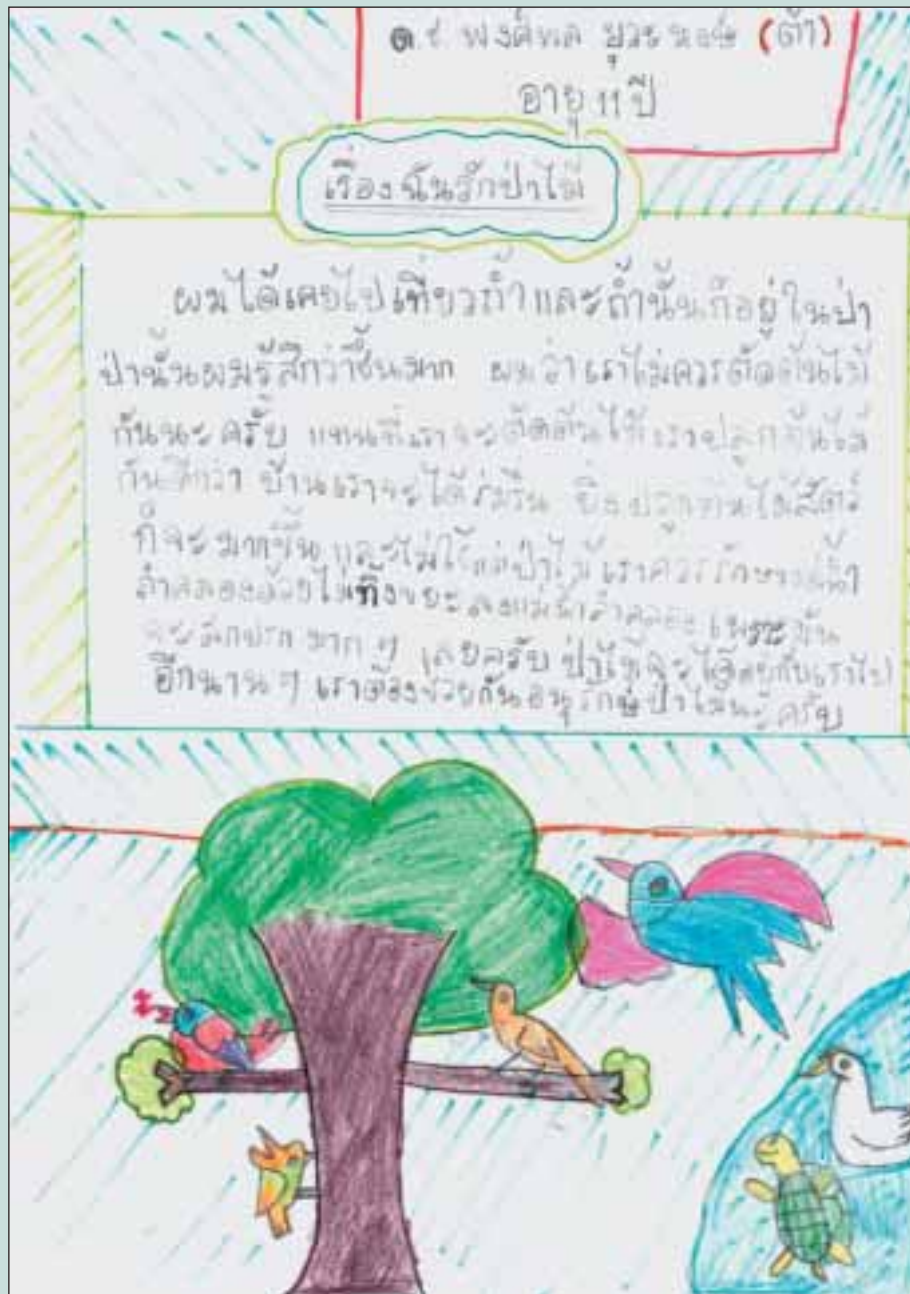 ด.ช. พงศ์พล ยุวะหงษ์ (ต้า)
อายุ 11 ปี
เรื่องฉันรักป่าไม้
ผมได้เคยไปเที่ยวถ้ำและถ้ำนั้นก็อยู่ในป่า
ป่านั้นผมรู้สึกว่าชื้นมาก ผมว่าเราไม่ควรตัดต้นไม้
กันนะครับ แทนที่เราจะตัดต้นไม้เราปลูกต้นไม้
กันดีกว่า บ้านเราจะได้ร่มรื่น ยิ่งปลูกต้นไม้สัตว์
ก็จะมากขึ้น และไม่ใช่แค่ป่าไม้ เราควรรักษาแม่น้ำ
ลำคลองด้วยไม่ทิ้งขยะลงแม่น้ำลำคลอง เพราะมัน
จะสกปรกมาก ๆ เลยครับ ป่าไม้จะได้อยู่กับเราไป
อีกนาน ๆ เราต้องช่วยกันอนุรักษ์ป่าไม้นะครับ